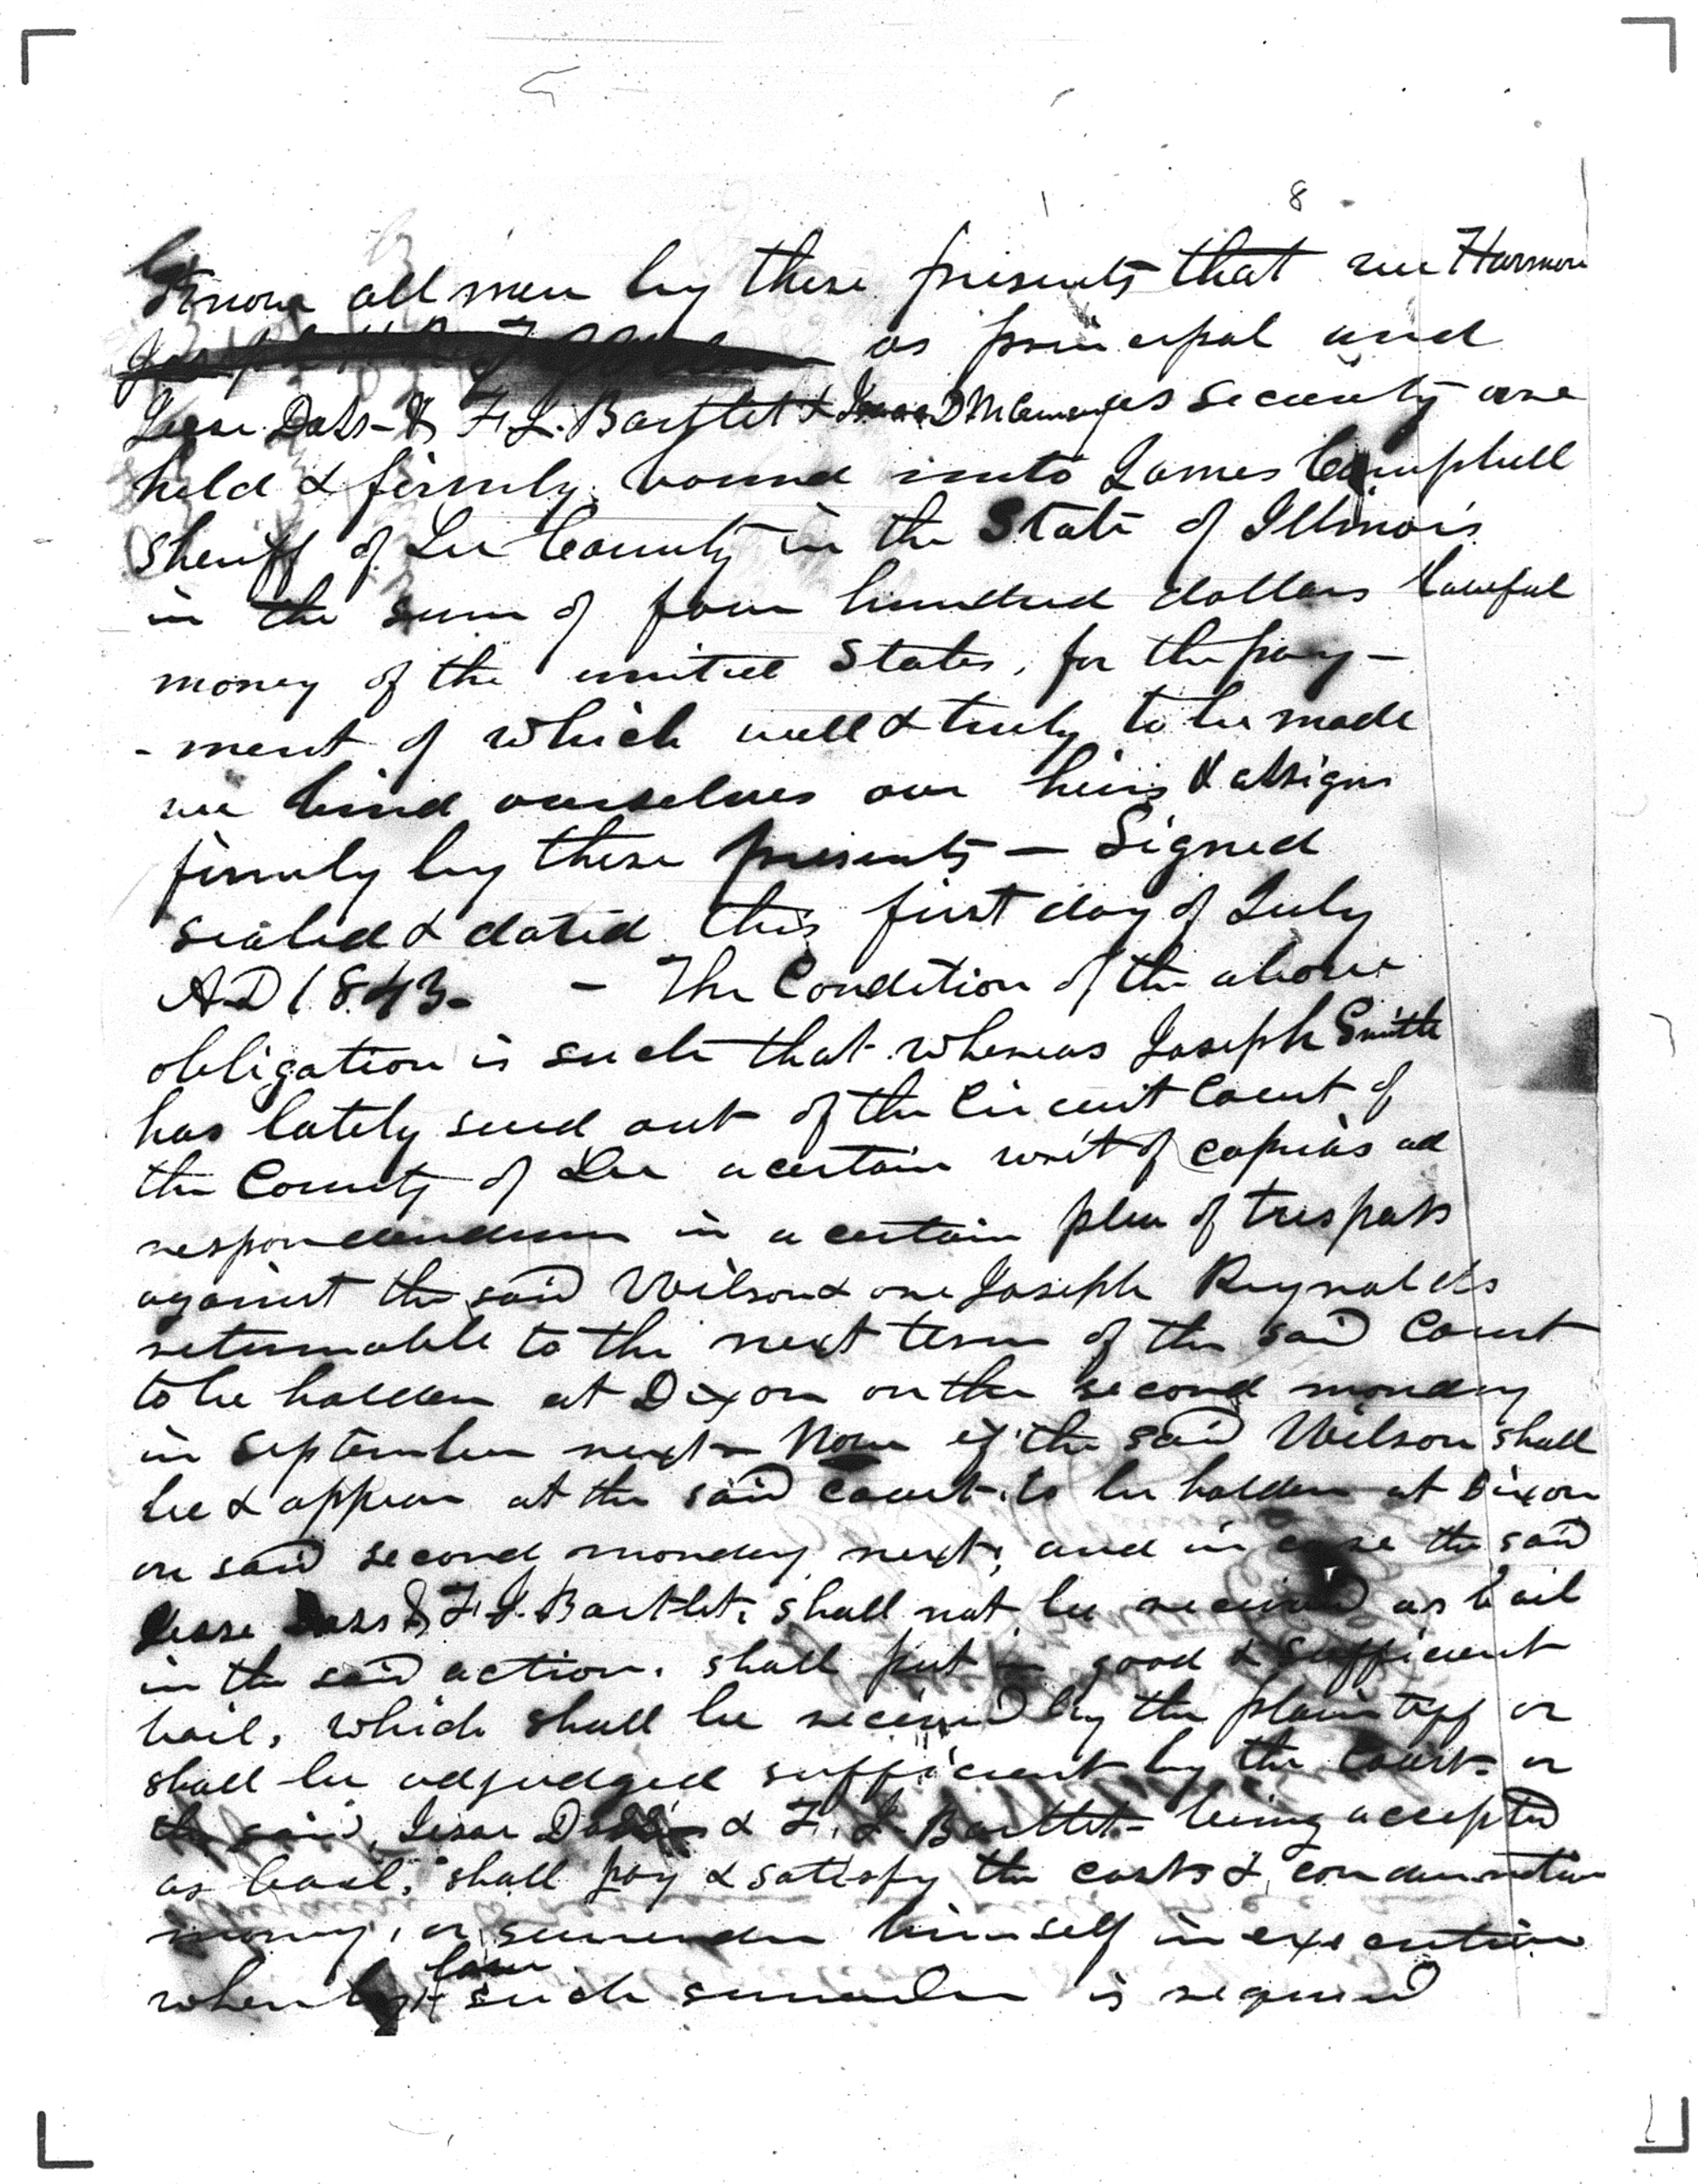 8
Know all men by these presents that we Harmon
as principal and
Jesse Doss & F. L. Bartlet & as security are
held & firmly bound unto James Campbell
Sheriff of Lee County in the State of Illinois
in the sum of four hundred dollars lawful
money of the united States, for the pay-
-ment of which well & truly to be made
we bind ourselves our heirs & assigns
firmly by these presents — Signed
sealed & dated this first day of July
AD 1843 - — The Condition of the above
obligation is such that whereas Joseph Smith
has lately sued out of the Circuit Court of
the County of Lee a certain writ of capias ad
respondendum in a certain plea of trespass
against the said Wilson & one Joseph Reynolds
returnable to the next term of the said Court
to be holden at Dixon on the second monday
in September next — Now if the said Wilson shall
be & appear at the said Court to be holden at Dixon
on said second monday next, and in case the said
Jesse Doss & F. L. Bartlet, shall not be received as bail
in the said action, shall put in good & sufficient
bail, which shall be received by the plaintiff or
shall be adjudged sufficient by the Court - or
the said, Jesse & F. L. Bartlet - being accepted
as bail, shall pay & satisfy the costs & condemnation
money, or surrender himself in execution
when by law such surrender is required